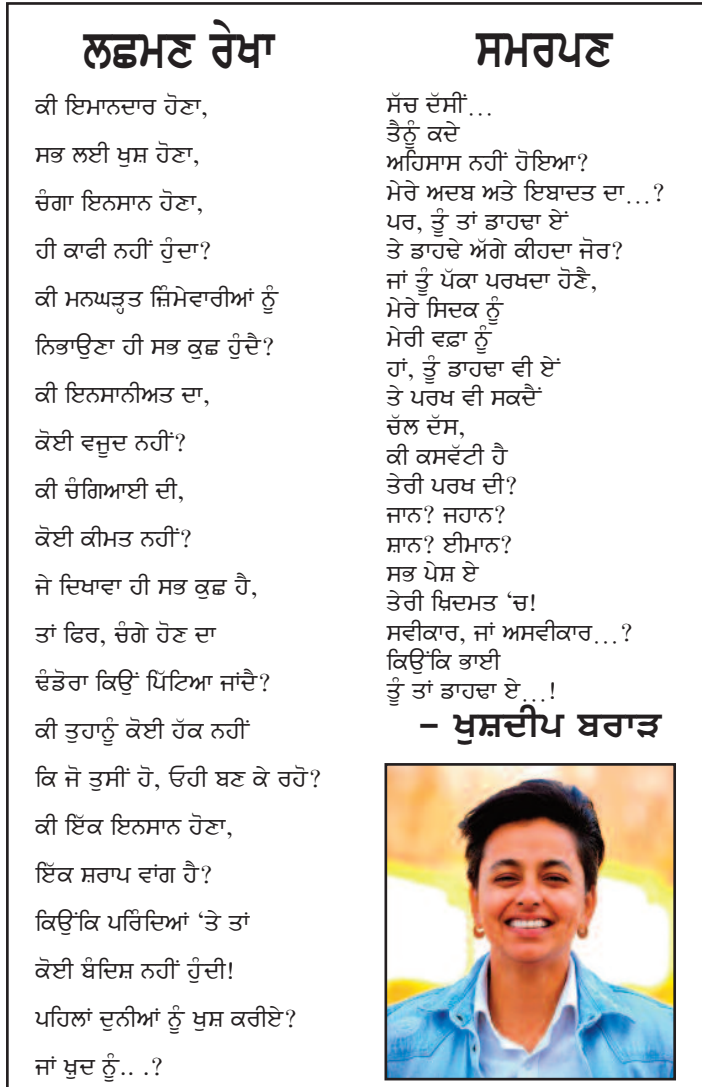 ਲਛਮਣ ਰੇਖਾ
ਕੀ ਇਮਾਨਦਾਰ ਹੋਣਾ,
ਸਭ ਲਈ ਖੁਸ਼ ਹੋਣਾ,
ਚੰਗਾ ਇਨਸਾਨ ਹੋਣਾ,
ਹੀ ਕਾਫੀ ਨਹੀਂ ਹੁੰਦਾ?
ਕੀ ਮਨਘੜ੍ਹਤ ਜ਼ਿੰਮੇਵਾਰੀਆਂ ਨੂੰ
ਨਿਭਾਉਣਾ ਹੀ ਸਭ ਕੁਛ ਹੁੰਦੈ?
ਕੀ ਇਨਸਾਨੀਅਤ ਦਾ,
ਕੋਈ ਵਜੂਦ ਨਹੀਂ?
ਕੀ ਚੰਗਿਆਈ ਦੀ,
ਕੋਈ ਕੀਮਤ ਨਹੀਂ?
ਜੇ ਦਿਖਾਵਾ ਹੀ ਸਭ ਕੁਛ ਹੈ,
ਤਾਂ ਫਿਰ, ਚੰਗੇ ਹੋਣ ਦਾ
ਢੰਡੋਰਾ ਕਿਉਂ ਪਿੱਟਿਆ ਜਾਂਦੈ?
ਕੀ ਤੁਹਾਨੂੰ ਕੋਈ ਹੱਕ ਨਹੀਂ
ਕਿ ਜੋ ਤੁਸੀਂ ਹੋ, ਓਹੀ ਬਣ ਕੇ ਰਹੋ?
ਕੀ ਇੱਕ ਇਨਸਾਨ ਹੋਣਾ,
ਇੱਕ ਸ਼ਰਾਪ ਵਾਂਗ ਹੈ?
ਕਿਉਂਕਿ ਪਰਿੰਦਿਆਂ ‘ਤੇ ਤਾਂ
ਕੋਈ ਬੰਦਿਸ਼ ਨਹੀਂ ਹੁੰਦੀ!
ਪਹਿਲਾਂ ਦੁਨੀਆਂ ਨੂੰ ਖੁਸ਼ ਕਰੀਏ?
ਜਾਂ ਖ਼ੁਦ ਨੂੰ.. .?
ਸਮਰਪਣ
ਸੱਚ ਦੱਸੀਂ...
ਤੈਨੂੰ ਕਦੇ
ਅਹਿਸਾਸ ਨਹੀਂ ਹੋਇਆ?
ਮੇਰੇ ਅਦਬ ਅਤੇ ਇਬਾਦਤ ਦਾ...?
ਪਰ, ਤੂੰ ਤਾਂ ਡਾਹਢਾ ਏਂ
ਤੇ ਡਾਹਢੇ ਅੱਗੇ ਕੀਹਦਾ ਜੋਰ?
ਜਾਂ ਤੂੰ ਪੱਕਾ ਪਰਖਦਾ ਹੋਣੈ,
ਮੇਰੇ ਸਿਦਕ ਨੂੰ
ਮੇਰੀ ਵਫ਼ਾ ਨੂੰ
ਹਾਂ, ਤੂੰ ਡਾਹਢਾ ਵੀ ਏਂ
ਤੇ ਪਰਖ ਵੀ ਸਕਦੈਂ
ਚੱਲ ਦੱਸ,
ਕੀ ਕਸਵੱਟੀ ਹੈ
ਤੇਰੀ ਪਰਖ ਦੀ?
ਜਾਨ? ਜਹਾਨ?
ਸ਼ਾਨ? ਈਮਾਨ?
ਸਭ ਪੇਸ਼ ਏ
ਤੇਰੀ ਖ਼ਿਦਮਤ ‘ਚ!
ਸਵੀਕਾਰ, ਜਾਂ ਅਸਵੀਕਾਰ...?
ਕਿਉਂਕਿ ਭਾਈ
ਤੂੰ ਤਾਂ ਡਾਹਢਾ ਏ...!
– ਖੁਸ਼ਦੀਪ ਬਰਾੜ